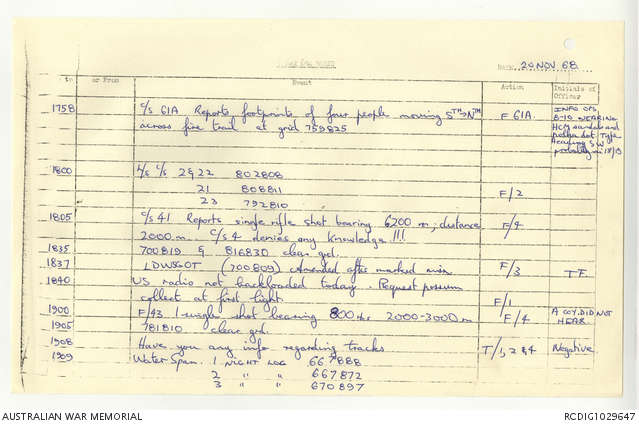 DATE 29 NOV 68
or From Event Action Initials of
Officer
1758 C/S 61A Reports footprints of four people moving STH→NTH F 61A INFO OPS,
across fire trail at grid 759825 8-10 WEARING
HCM sandals and
heading SW
1800 L/S C/S 2 & 22 802808
21 808811 F/2
23 792810
1805 C/S 41 Reports single rifle shot bearing 6200 m; distance F/4
2000 m. C/S 4 denies any knowledge !!!
1835 700819 & 816830 clear grd.
1837 LDWSGOT (700809) Amended after marked F/3 TF
1840 US radio not backloaded today. Request possum
collect at first light. F/1
1900 F/43 1 single shot bearing 800 2000-3000 m F/4 A COY. DID NOT
HEAR.
1905 781810 clear grd.
1908 Have you any info regarding tracks T/1, 2 & 4 Negative
1909 Water Span. 1 NIGHT LOC 667888
2 " " 667872
3 " " 670897
AUSTRALIAN WAR MEMORIAL RCDIG1029647